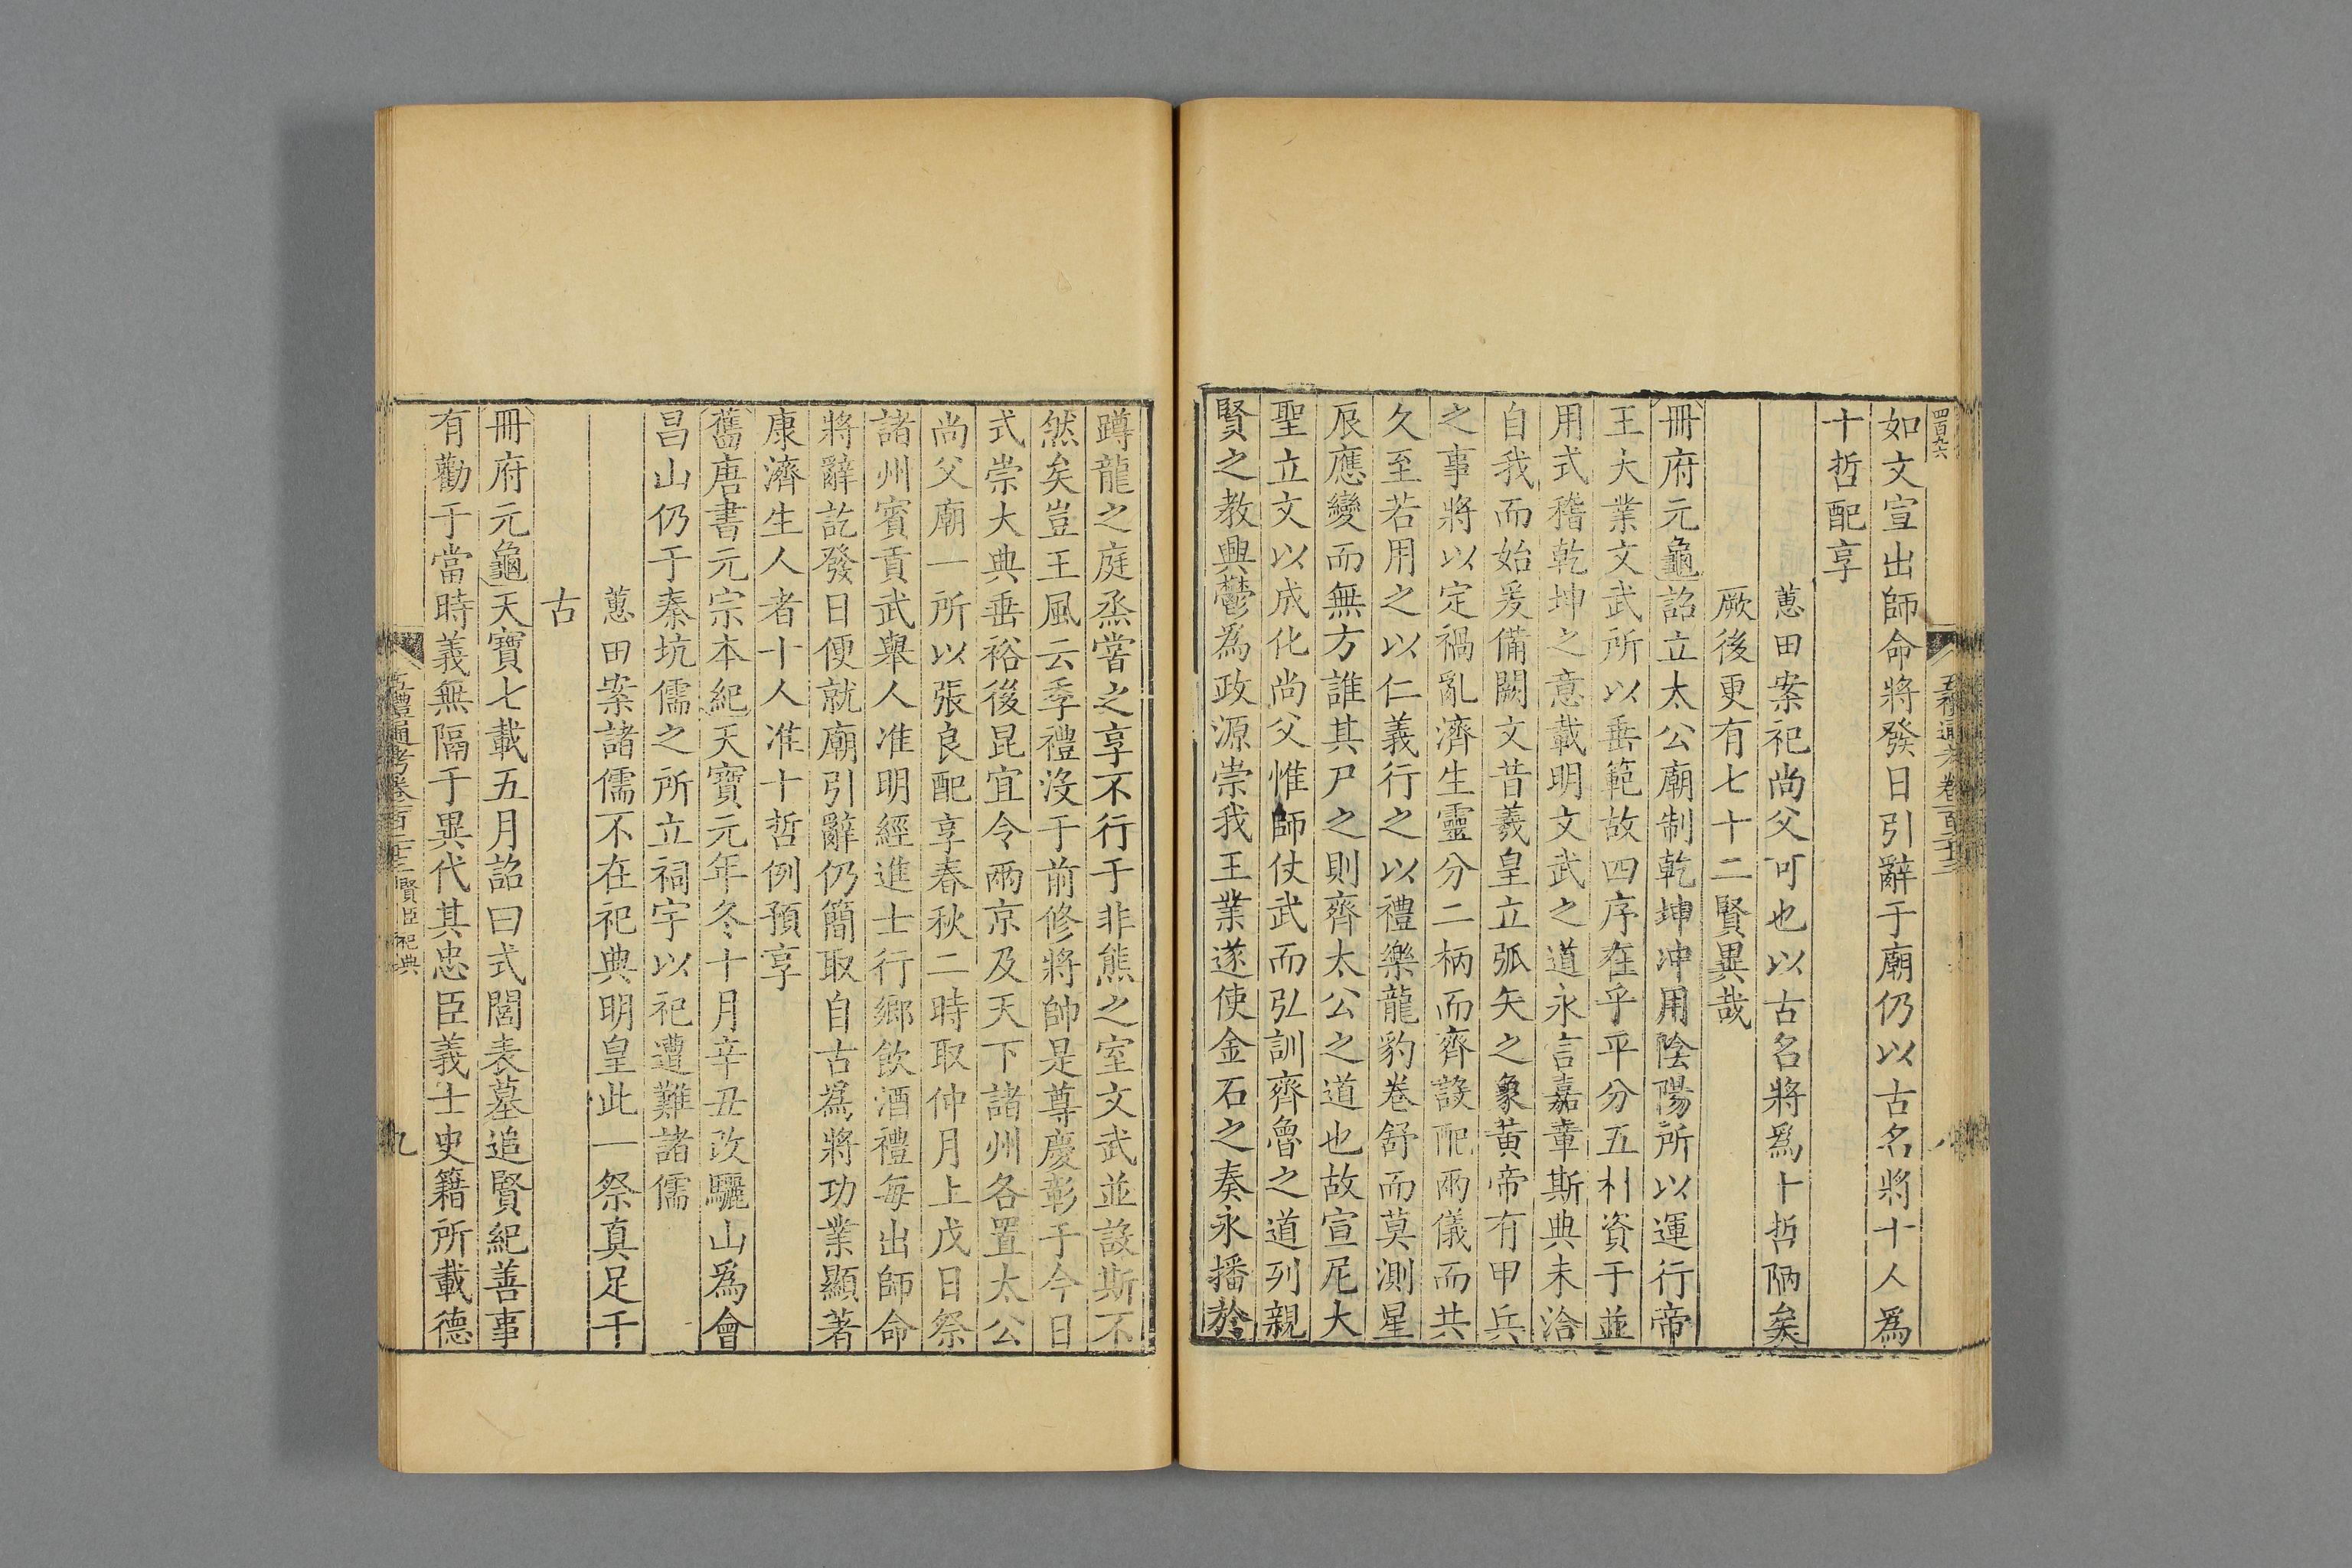 四百九六
如文宣出師命將發日引辭于廟仍以古名將十人爲
十哲配享
蕙田案祀尚父可也以古名將爲十哲陋矣
厥後更有七十二賢異哉
冊府元龜詔立太公廟制乾坤冲用陰陽所以運行帝
王大業文武所以垂範故四序在乎平分五材資于並
用式稽乾坤之意載明文武之道永言嘉章斯典未洽
自我而始爰備闕文昔羲皇立弧矢之象黃帝有甲兵
之事將以定禍亂濟生靈分二柄而齊設配兩儀而共
久至若用之以仁義行之以禮樂龍豹卷舒而莫測星
辰應變而無方誰其尸之則齊太公之道也故宣尼大
聖立文以成化尚父惟師仗武而弘訓齊魯之道列親
賢之教興鬱為政源崇我王業遂使金石之奏永播於
蹲龍之庭烝嘗之享不行于非熊之室文武並設斯不
然矣豈王風云季禮沒于前修將帥是尊慶彰于今日
式崇大典垂裕後昆宜令兩京及天下諸州各置太公
尚父廟一所以張良配享春秋二時取仲月上戊日祭
諸州賓貢武舉人准明經進士行鄉飲酒禮每出師命
將辭訖發日便就廟引辭仍簡取自古爲將功業顯著
康濟生人者十人准十哲例預享
舊唐書元宗本紀天寶元年冬十月辛丑改驪山爲會
昌山仍于秦坑儒之所立祠宇以祀遭難諸儒
蕙田案諸儒不在祀典明皇此一祭真足千
古
冊府元龜天寶七載五月詔曰式閭表墓追賢紀善事
有勸于當時義無隔于異代其忠臣義士史籍所載德
五禮通考卷一百二十三 賢臣祀典
九